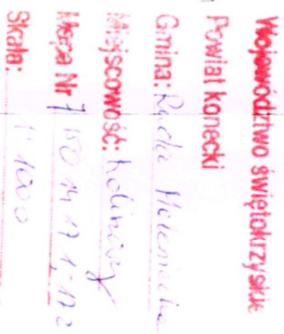 Województwo świętokrzyskie
Powiat konecki
Gmina: Ruda Maleniecka
Miejscowość: Koliszowy
Mapa Nr
Skala: 1:1000